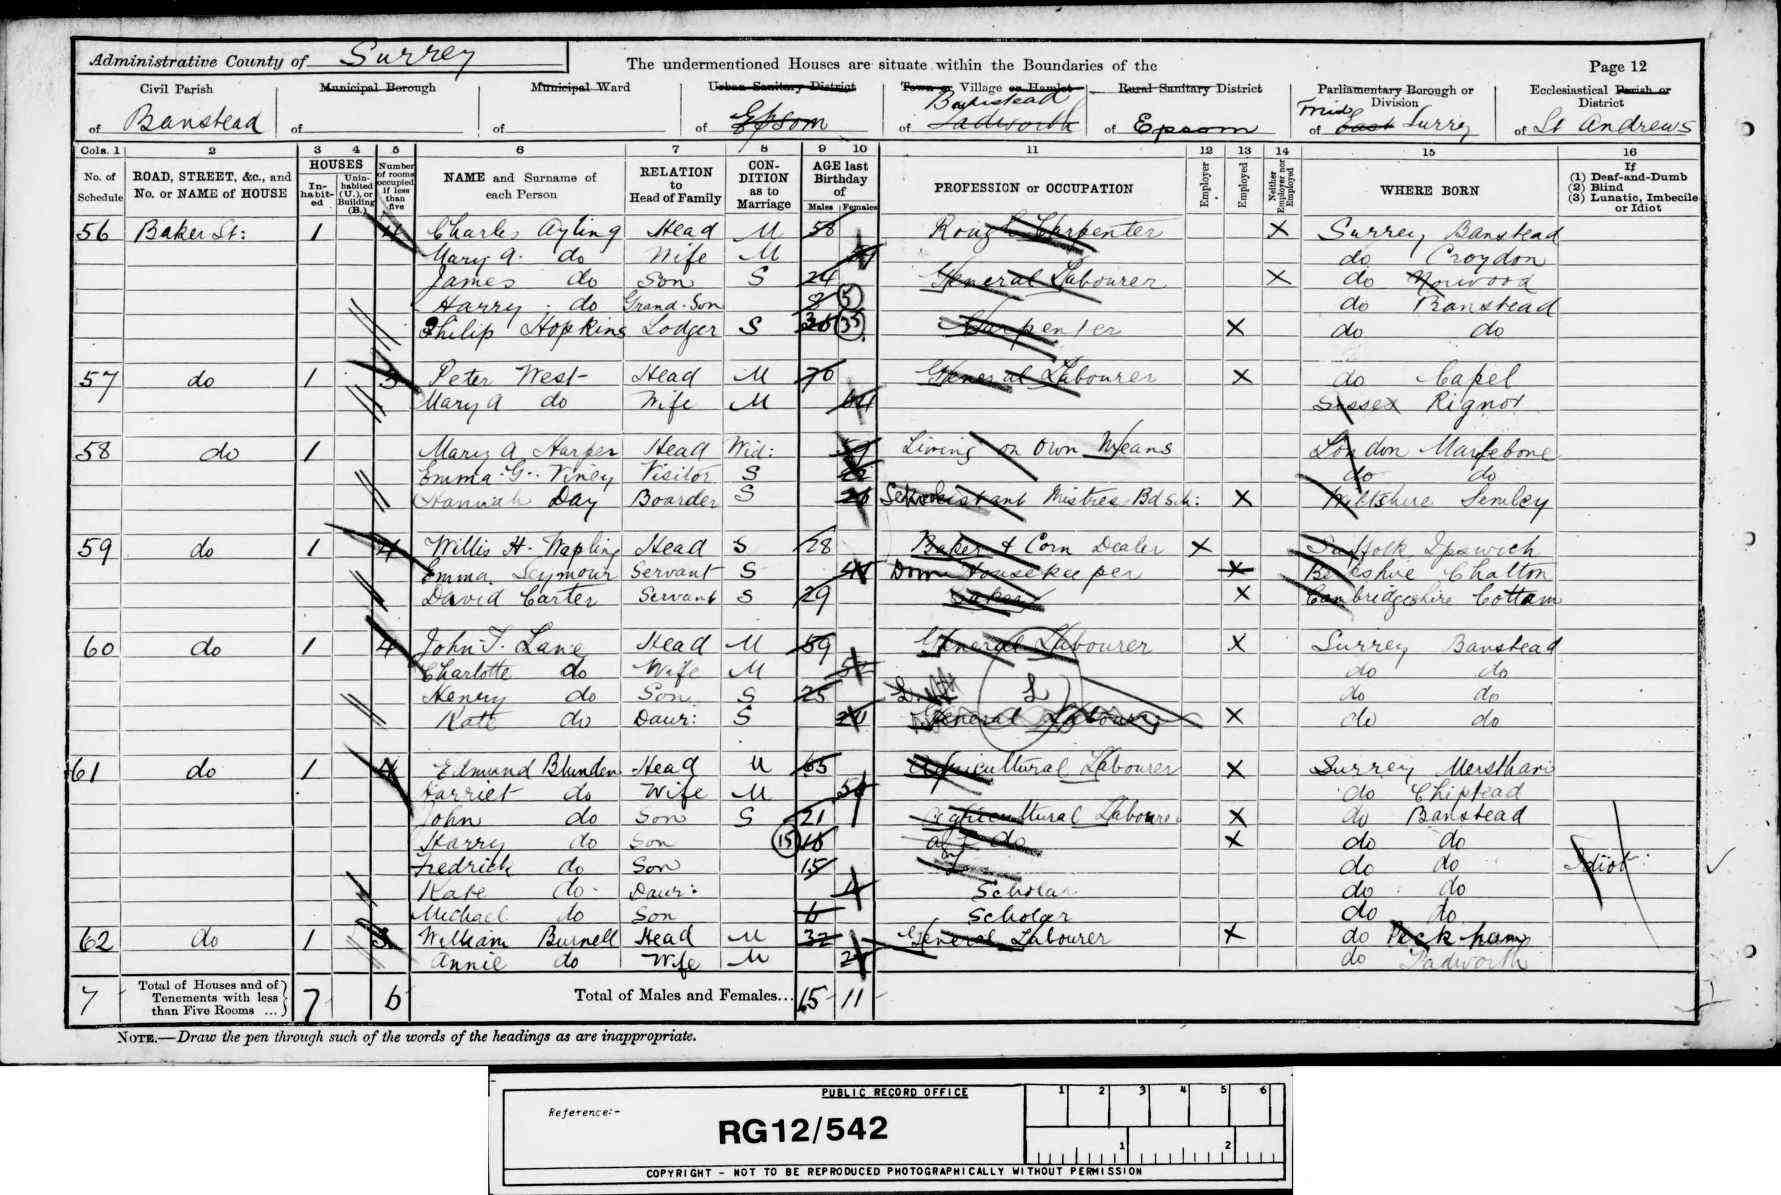 Administrative County of Surrey
The undermentioned Houses are situate within the Boundaries of the
Page 12
Civil Parish of Banstead
Municipal Borough of
Municipal Ward of
Urban Sanitary District of Epsom
Town or Village or Hamlet of Banstead Tadworth
Rural Sanitary District of Epsom
Parliamentary Borough or Division of Mid East Surrey
Ecclesiastical Parish or District of St Andrews
Cols. 1 2 3 4 5 6 7 8 9 10 11 12 13 14 15 16
No. of Schedule
ROAD, STREET, &c., and No. or NAME of HOUSE
HOUSES
In-habit-ed
Unin-habited (U.), or Building (B.)
Number of rooms occupied if less than five
NAME and Surname of each Person
RELATION to Head of Family
CON-DITION as to Marriage
AGE last Birthday of
Males Females
PROFESSION or OCCUPATION
Employer
Employed
Neither Employer nor Employed
WHERE BORN
If (1) Deaf-and-Dumb (2) Blind (3) Lunatic, Imbecile or Idiot
56 Baker St: 1 4 Charles Ayling Head M 58 Rough Carpenter X Surrey Banstead
Mary A. do Wife M do Croydon
James do Son S 24 General Labourer X do Norwood
Harry do Grand-Son 5 do Banstead
Philip Hopkins Lodger S 35 Carpenter X do do
57 do 1 3 Peter West Head M 70 General Labourer X do Capel
Mary A do Wife M 64 Sussex
58 do 1 Mary A Harper Head Wid: 59 Living on Own Means London Marlebone
Emma G. Viney Visitor S do do
Hannah Day Boarder S 26 Mistress Bd Sch: X Wiltshire Semley
59 do 1 4 Willis H. Wapling Head S 28 Baker & Corn Dealer X Suffolk Ipswich
Emma Seymour Servant S Dom Housekeeper X Berkshire Chalton
David Carter Servant S 29 Baker X Cambridgeshire Cottam
60 do 1 4 John T. Lane Head M 59 General Labourer X Surrey Banstead
Charlotte do Wife M do do
Henry do Son S 25 L do do
Kate do Daur: S General Labourer X do do
61 do 1 4 Edmund Blunden Head M 65 Agricultural Labourer X Surrey Merstham
Harriet do Wife M do Chipstead
John do Son S 21 Agricultural Labourer X do Banstead
Harry do Son 15 do X do do
Fredrick do Son 15 do do Idiot
Kate do Daur: Scholar do do
Michael do Son 6 Scholar do do
62 do 1 3 William Burnell Head M 32 General Labourer X do Peckham
Annie do Wife M do Tadworth
7 Total of Houses and of Tenements with less than Five Rooms ... 7 6 Total of Males and Females... 15 11
NOTE.—Draw the pen through such of the words of the headings as are inappropriate.
PUBLIC RECORD OFFICE
1 2 3 4 5 6
Reference:-
RG12/542
1 2
COPYRIGHT - NOT TO BE REPRODUCED PHOTOGRAPHICALLY WITHOUT PERMISSION